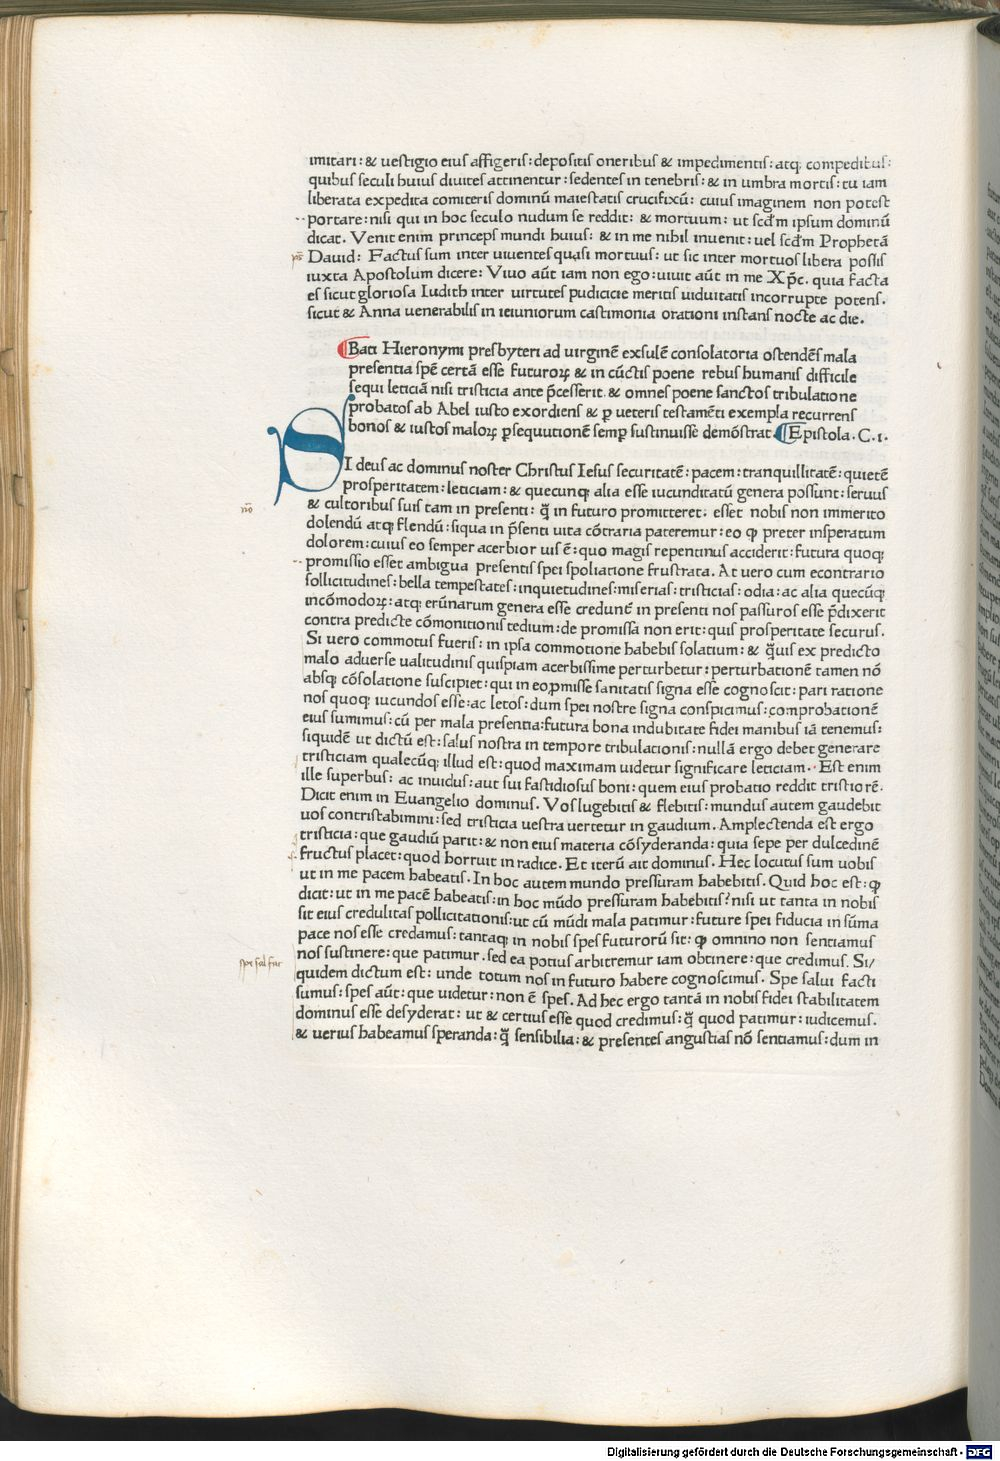 imitari: & ueſtigio eiuſ affigeriſ: depoſitiſ oneribuſ & impedimentiſ: atq; compedibuſ:
quibuſ ſeculi huiuſ diuiteſ attinentur: ſedenteſ in tenebriſ: & in umbra mortiſ: tu iam
liberata expedita comiteriſ dominū maieſtatiſ crucifixū: cuiuſ imaginem non poteſt
portare: niſi qui in hoc ſeculo nudum ſe reddit: & mortuum: ut ſcd̄m ipſum dominū
dicat. Venit enim princepſ mundi huiuſ: & in me nihil inuenit: uel ſcd̄m Prophetā
Dauid: Factuſ ſum inter uiuenteſ quaſi mortuuſ: ut ſic inter mortuoſ libera poſſiſ
iuxta Apoſtolum dicere: Viuo aūt iam non ego: uiuit aūt in me Xp̄c. quia facta
eſ ſicut glorioſa Iudith inter uirtuteſ pudicicie meritiſ uiduitatiſ incorrupte potenſ.
ſicut & Anna uenerabiliſ in ieiuniorum caſtimonia orationi inſtanſ nocte ac die.
Bati Hieronymi preſbyteri ad uirginē exſulē conſolatoria oſtendēſ mala
preſentia ſpē certā eſſe futuroꝝ & in cūctiſ poene rebuſ humaniſ difficile
ſequi leticiā niſi triſticia ante p̄ceſſerit. & omneſ poene ſanctoſ tribulatione
probatoſ ab Abel iuſto exordienſ & ꝑ ueteriſ teſtamēti exempla recurrenſ
bonoſ & iuſtoſ maloꝝ ꝑſequutionē ſemꝑ ſuſtinuiſſe demōſtrat. Epiſtola. C. i.
SI deuſ ac dominuſ noſter Chriſtuſ Ieſuſ ſecuritatē: pacem: tranquillitatē: quietē
proſperitatem: leticiam: & quecunq; alia eſſe iucunditatū genera poſſunt: ſeruuſ
& cultoribuſ ſuiſ tam in preſenti: q̄̄ in futuro promitteret: eſſet nobiſ non immerito
dolendū atq; flendū: ſiqua in p̄ſenti uita cōtraria pateremur: eo ꝙ preter inſperatum
dolorem: cuiuſ eo ſemper acerbior uiſ ē: quo magiſ repentinuſ acciderit: futura quoq;
promiſſio eſſet ambigua preſentiſ ſpei ſpoliatione fruſtrata. At uero cum econtrario
ſollicitudineſ: bella tempeſtateſ: inquietudineſ: miſeriaſ: triſticiaſ: odia: ac alia quecūq;
incōmodoꝝ: atq; erūnarum genera eſſe credunt̄ in preſenti noſ paſſuroſ eſſe p̄dixerit
contra predicte cōmonitioniſ tedium: de promiſſa non erit: quiſ proſperitate ſecuruſ.
Si uero commotuſ fueriſ: in ipſa commotione habebiſ ſolatium: & q̄̄uiſ ex predicto
malo aduerſe ualitudiniſ quiſpiam acerbiſſime perturbetur: perturbationē tamen nō
abſq; cōſolatione ſuſcipiet: qui in eo ꝓmiſſe ſanitatiſ ſigna eſſe cognoſcit: pari ratione
noſ quoq; iucundoſ eſſe: ac letoſ: dum ſpei noſtre ſigna conſpicimuſ: comprobationē
eiuſ ſumimuſ: cū per mala preſentia: futura bona indubitate fidei manibuſ iā tenemuſ:
ſiquidē ut dictū eſt: ſaluſ noſtra in tempore tribulationiſ: nullā ergo debet generare
triſticiam qualecūq; illud eſt: quod maximam uidetur ſignificare leticiam. Eſt enim
ille ſuperbuſ: ac inuiduſ: aut ſui faſtidioſuſ boni: quem eiuſ probatio reddit triſtiorē.
Dicit enim in Euangelio dominuſ. Voſ lugebitiſ & flebitiſ: munduſ autem gaudebit
uoſ contriſtabimini: ſed triſticia ueſtra uertetur in gaudium. Amplectenda eſt ergo
triſticia: que gaudiū parit: & non eiuſ materia cōſyderanda: quia ſepe per dulcedinē
fructuſ placet: quod horruit in radice. Et iterū ait dominuſ. Hec locutuſ ſum uobiſ
ut in me pacem habeatiſ. In hoc autem mundo preſſuram habebitiſ. Quid hoc eſt: ꝙ
dicit: ut in me pacē habeatiſ: in hoc mūdo preſſuram habebitiſ? niſi ut tanta in nobiſ
ſit eiuſ credulitaſ pollicitationiſ: ut cū mūdi mala patimur: future ſpei fiducia in ſūma
pace noſ eſſe credamuſ: tantaq; in nobiſ ſpeſ futurorū ſit: ꝙ omnino non ſentiamuſ
noſ ſuſtinere: que patimur. ſed ea potiuſ arbitremur iam obtinere: que credimuſ. Si/
quidem dictum eſt: unde totum noſ in futuro habere cognoſcimuſ. Spe ſalui facti
ſumuſ: ſpeſ aūt: que uidetur: non ē ſpeſ. Ad hec ergo tantā in nobiſ fidei ſtabilitatem
dominuſ eſſe deſyderat: ut & certiuſ eſſe quod credimuſ: q̄̄ quod patimur: iudicemuſ.
& ueriuſ habeamuſ ſperanda: q̄̄ ſenſibilia: & preſenteſ anguſtiaſ nō ſentiamuſ: dum in
Digitalisierung gefördert durch die Deutsche Forschungsgemeinschaft - DFG